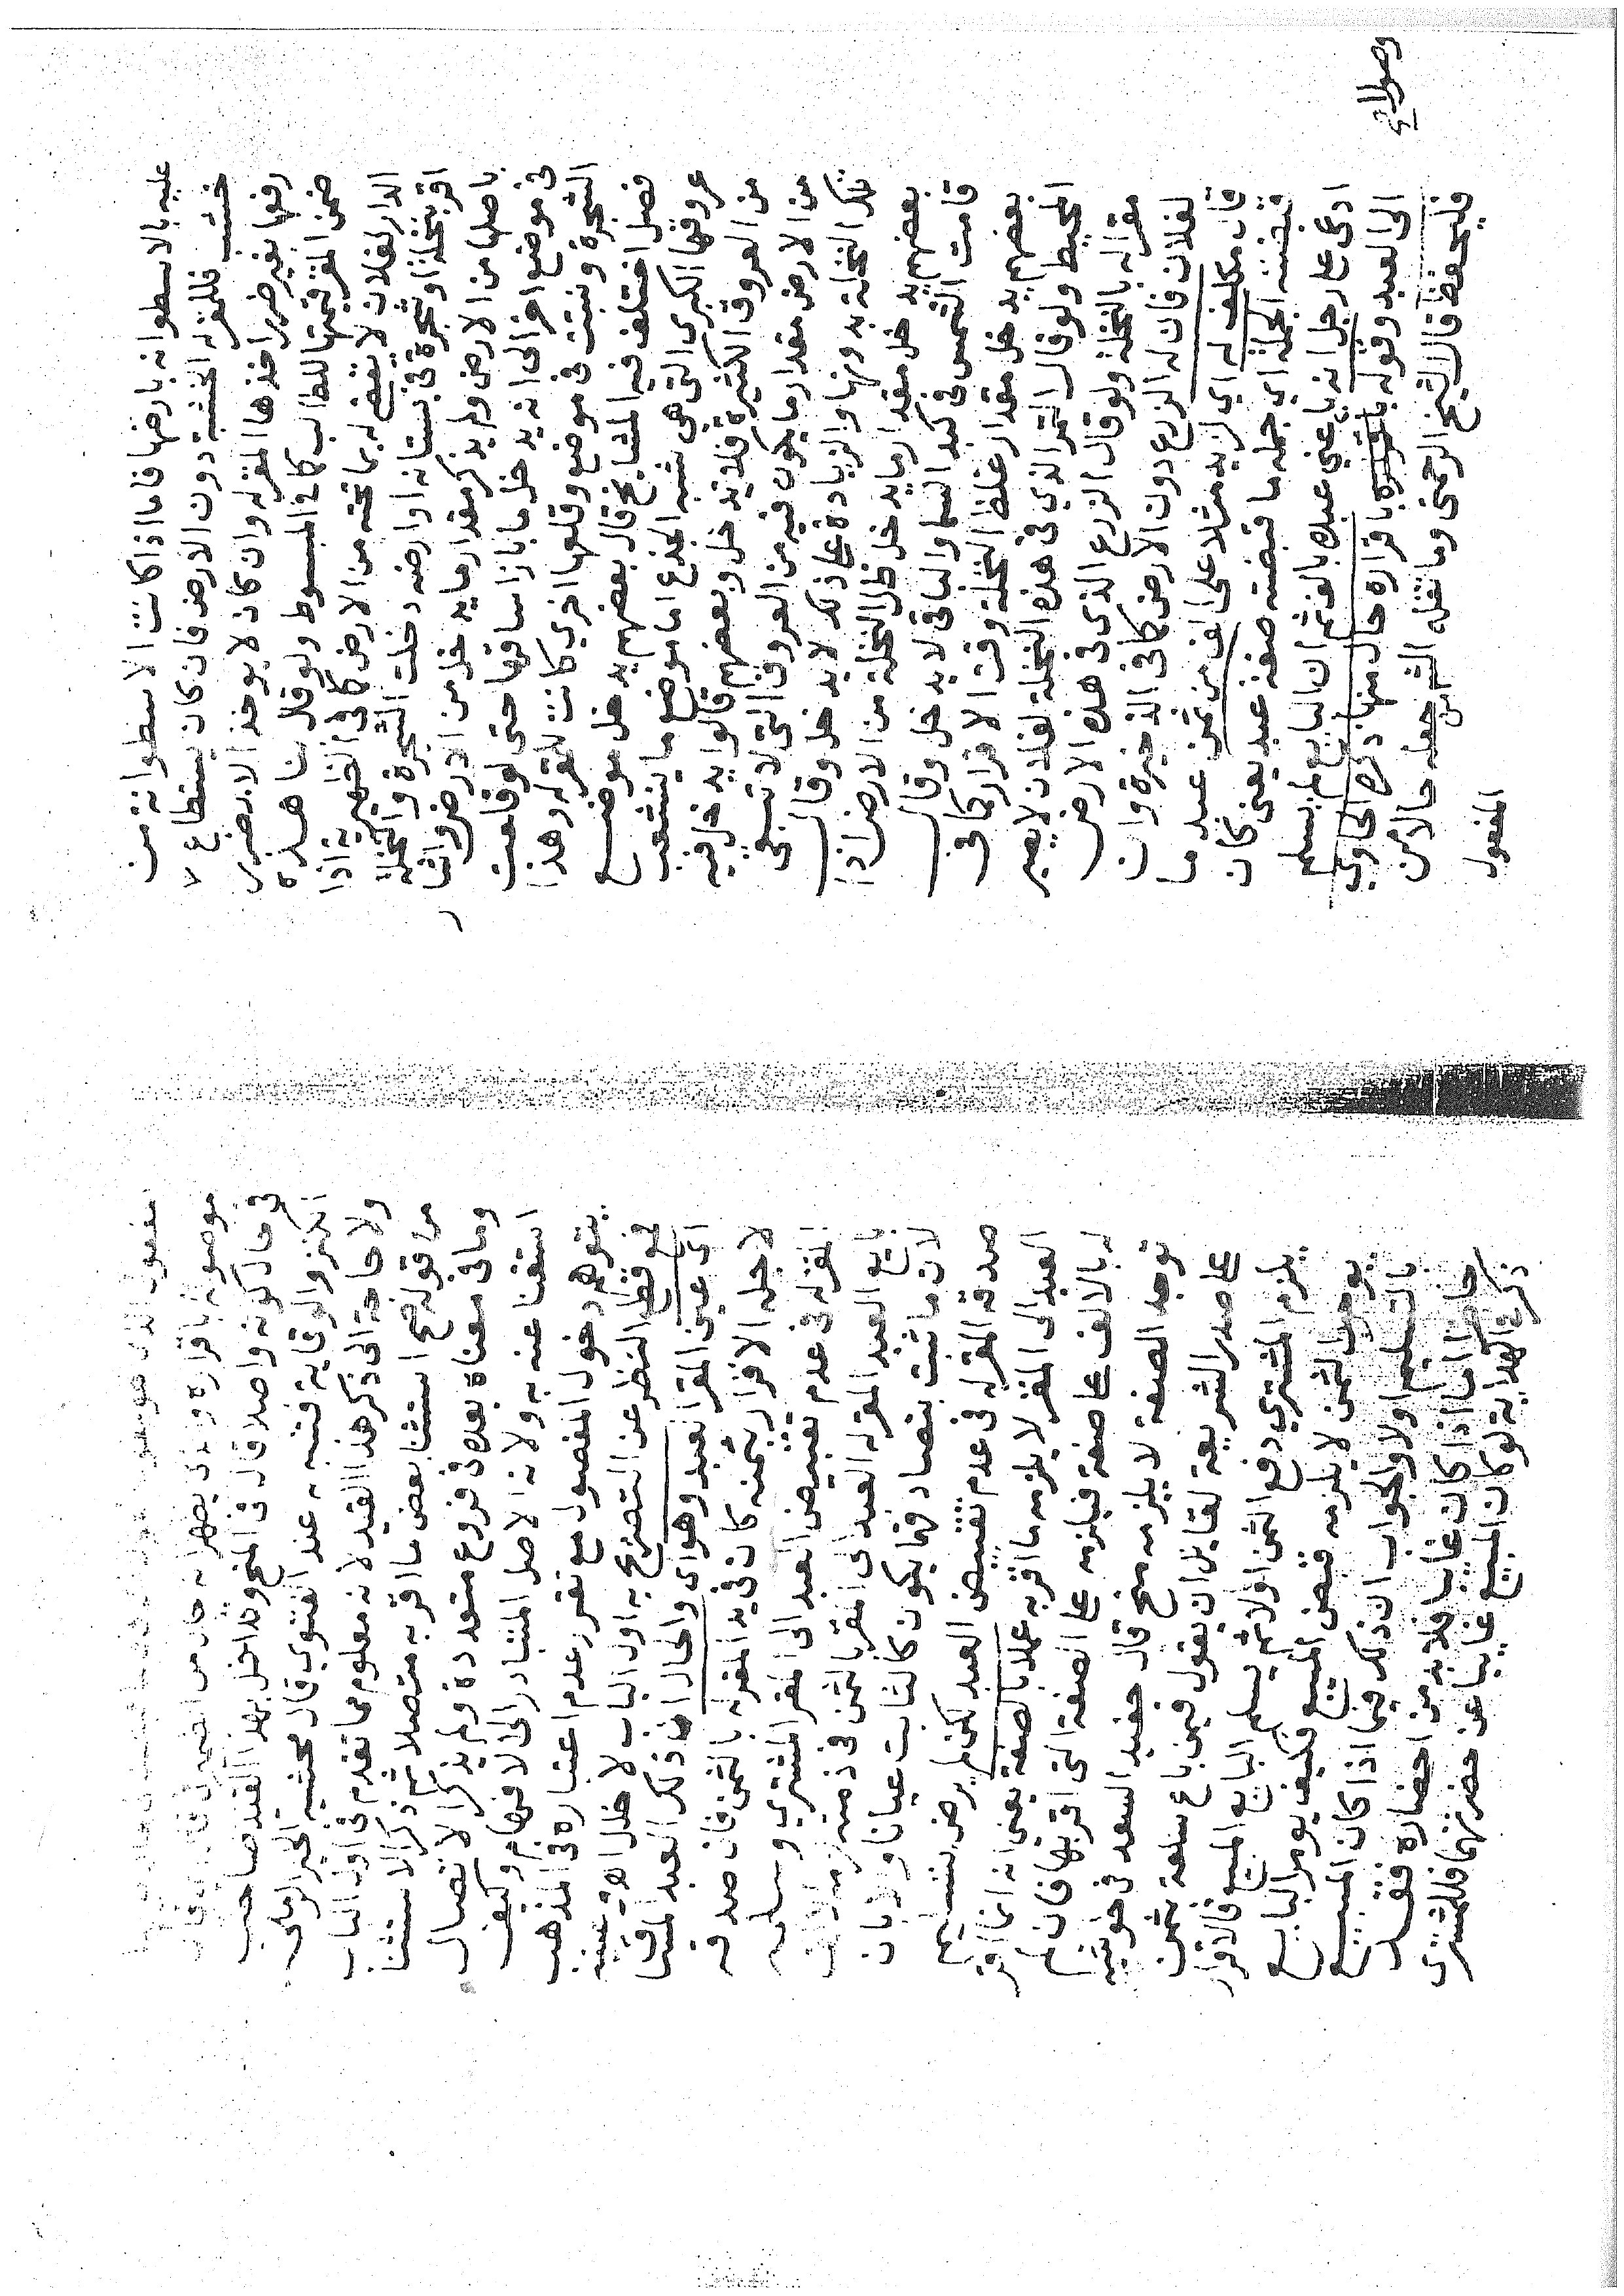 عليه بالاسطوانه بارضها فاما اذا كانت الاسطوانة من
خشب فللمقر له الخشبة دون الارض فان كان يستطاع لا
رفعها بغير ضرر اخذها المقر له وان كان لا يوخذ الا بضرر
ضمن المقر قيمتها للطالب كما في المبسوط ولو قال بنا هذه
الدار لفلان لا يقضى له بما تحته من الارض كما في الظهيرية اذا
اقر بنخلة او شجرة في بستانه او ارضه دخلت الشجرة والنخلة
باصلها من الارض ولم يذكر مقدار ما يدخل من الارض واشا
في موضع اخر الى انه يدخل ما بازا ساقها حتى لو قلعت
الشجرة ونبتت في موضع وقلعها اخري كانت للمقر له وهذا
فصل اختلف فيه المشايخ قال بعضهم يدخل موضع
عروقها الكبرى التي هي شبه الجذع اما موضع ما ينشعب
من العروق الكثيرة فلا يدخل وبعضهم قالوا يدخل فيه
من الارض مقدار ما يكون فيه من العروق التي لا تبقى
تلك النخلة بدونها والزيادة على ذلك لا يدخل وقال
بعضهم يدخل مقدار ما يدخل ظل النخلة من الارض اذا
قامت الشمس في كبد السما والباقي لا يدخل وقال
بعضهم يدخل مقدار غلظ النخلة وقت الاقرار كما في
المحيط ولو قال الثمر الذي في هذه النخلة لفلان لا يصير
مقرا له بالنخلة ولو قال الزرع الذي في هذه الارض
لفلان فان له الزرع دون الارض كما في الذخيرة وان
قال مكلف له اي لزيد مثلا على الف من ثمن عبد ما
قبضته الجملة اي جملة ما قبضته صفة عبد يعني كان
ادعى على رجل انه باعني عبده بالف ثم ان البايع لم يسلم
الى العبد وقوله باقراره حال منها ذكره الحاوي
فليحفظ قال الشيخ الرحمتي وما نقله الش من جعله حالا من
المفعول
وصولا في
مفعول الذي هو
موصوله باقراره
في حال كونه واصلا قال في المنح وقد اخل بهذا القيد صاحب
الكنز والوقاية فتنبه عند الفتوى قال محشيه الخير الرملي
ولا حاجة الى ذكر هذا القيد لانه معلوم مما تقدم في اول الباب
من قوله صح استثنا بعض ما اقر به متصلا ثم ذكر الاستثنا
وما في معناه بعده في فروع متعددة ولم يذكر الاتصال
استغنا عنه به ولانه الاصل المتبادر الى الافهام وكيف
يتوهم دخول المفصول مع تقرر عدم اعتباره في المذهب
مع قطع النظر عن التصريح به اول الباب لا خلل اهـ
اي عين المقر العبد وهو اي والحال ان ذلك العبد
في يد المقر له بالثمن فان صدقه
لاجله الاقرار بثمنه كان
المقر له في عدم تقبيض العبد الى المقر المشتري وسلمه
بايع العبد المقر له العبد الى المقر بالثمن في ذمته
لان ما ثبت بتصادقهما يكون كالثابت عيانا والا بان
صدقه المقر له في عدم تقبيض العبد لكن لم يرض بتسليم
العبد الى المقر لا يلزمه ما اقر به عملا بالصفة يعني انه انما اقر
له بالالف على صفة فيلزمه على الصفة التي اقر بها فان لم
توجد الصفة لا يلزمه منح قال حفيد السعد في حواشيه
على صدر الشريعة لقايل ان يقول فيمن باع سلعة بثمن
يلزم المشتري دفع الثمن اولا ثم يسلم البايع المبيع فالاقرار
يوجب الثمن لا يلزمه قبض المبيع فكيف يومر البايع
بالتسليم اولا والجواب ان ذلك فيما اذا كان المبيع
حاضرا اما اذا كان غايبا فلا بد من احضاره فقد
ذكر في الهداية لو كان المبيع غايبا عن حضرتهما فللمشتري